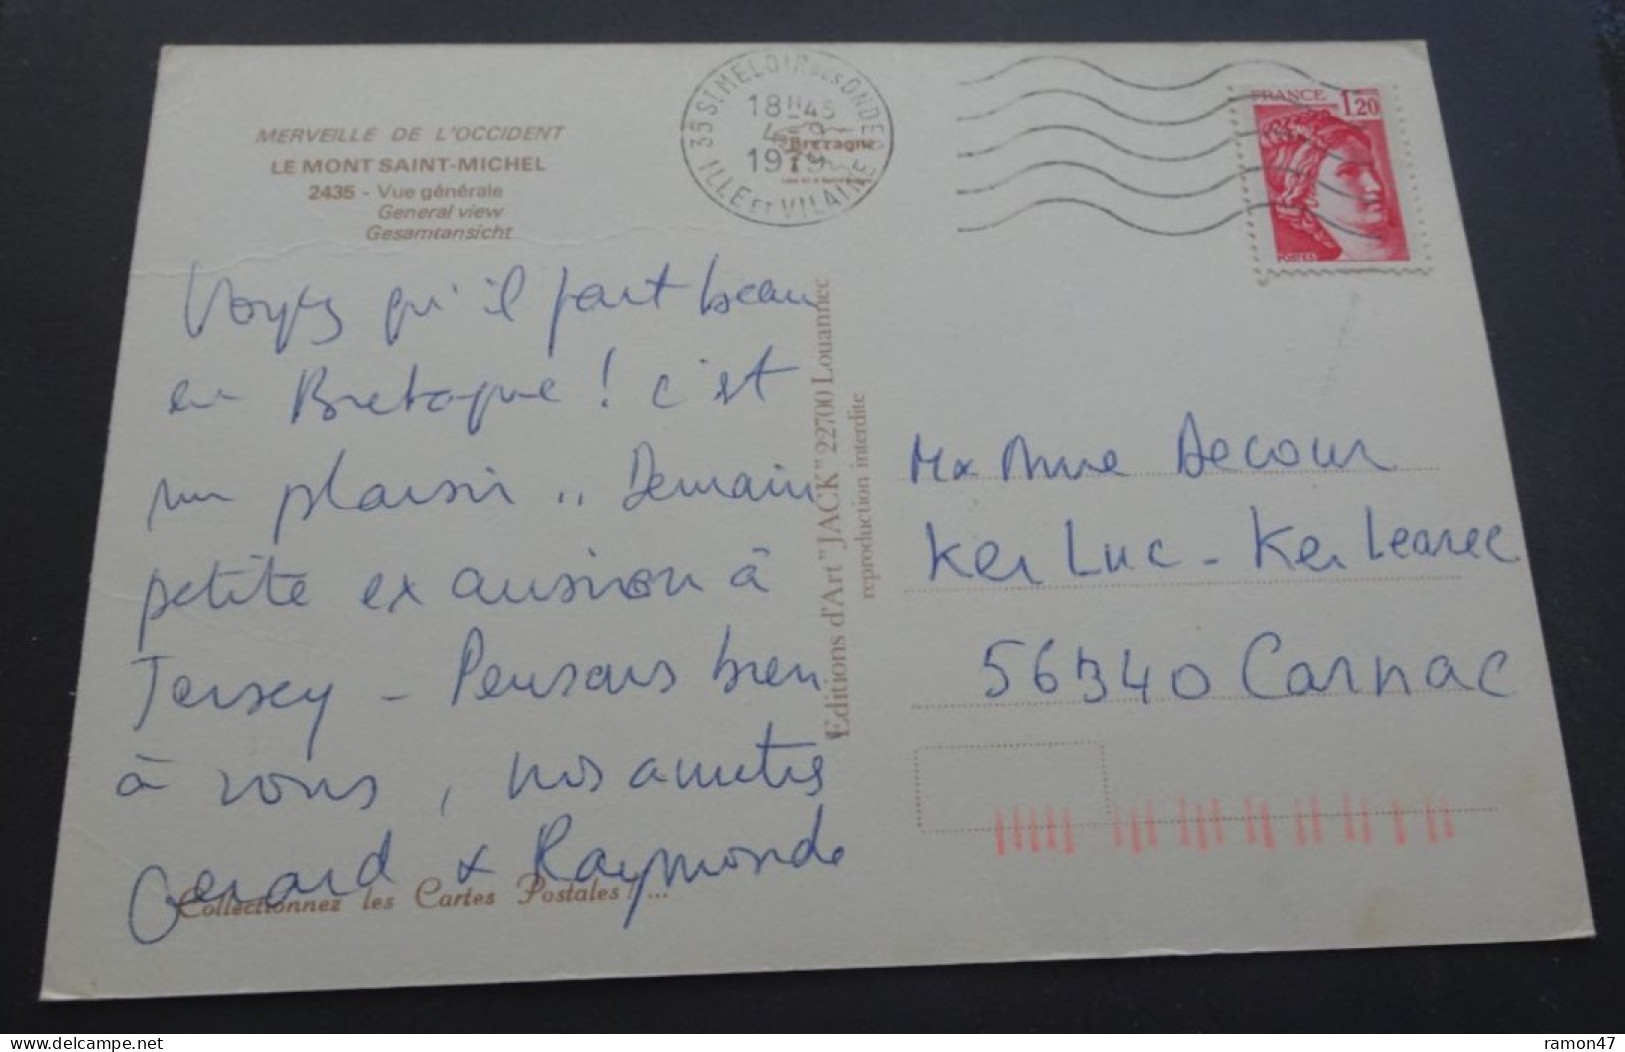 MERVEILLE DE L'OCCIDENT
LE MONT SAINT-MICHEL
2435 - Vue générale
General view
Gesamtansicht
35 ST MELOIR DES ONDES
18H45
4-9
1979
ILLE ET VILAINE
Bretagne
FRANCE 1,20
POSTES
Voyez qu'il fait beau
en Bretagne ! c'est
un plaisir .. Demain
petite excursion à
Jersey - Pensons bien
à vous, nos amitiés
Gérard & Raymonde
Collectionnez les Cartes Postales ! ...
Editions d'Art "JACK" 22700 Louannec
reproduction interdite
Anne Decour
Ker Luc - Ker Learec
56340 Carnac
ramon47